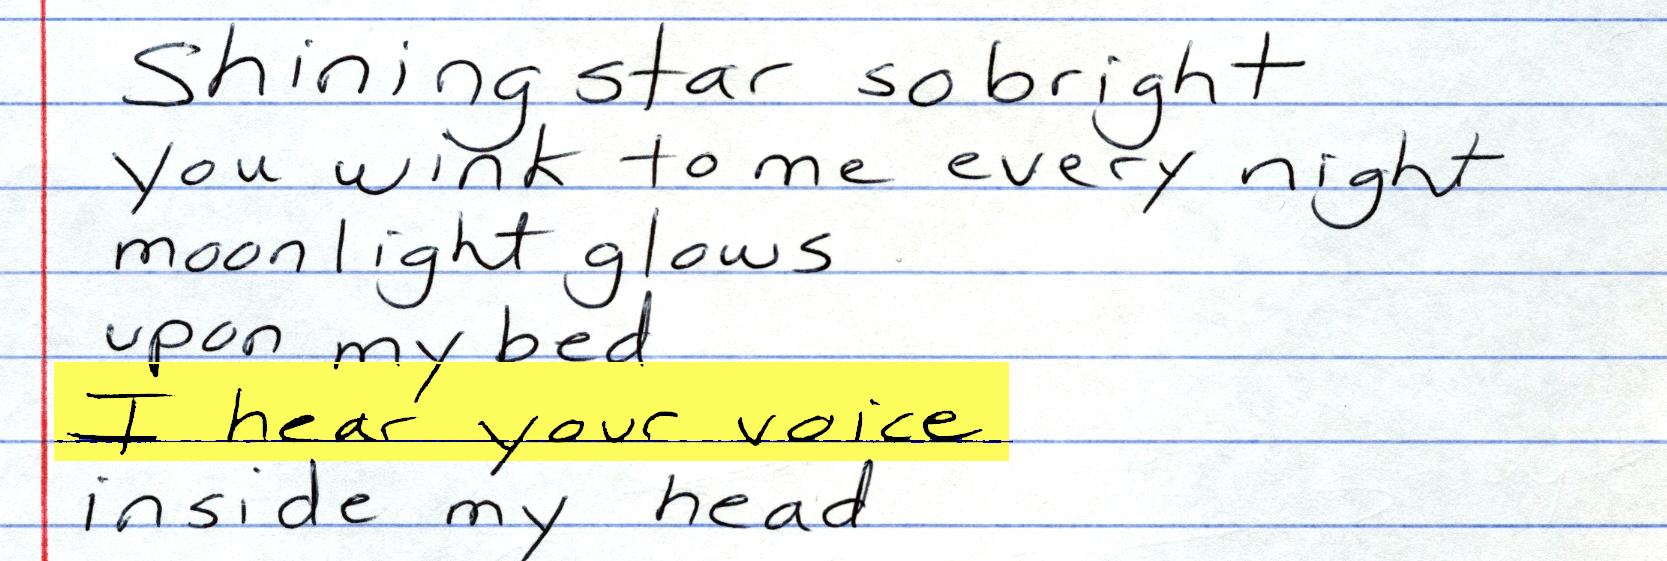 Shining star so bright
you wink to me every night
moonlight glows
upon my bed
I hear your voice
inside my head